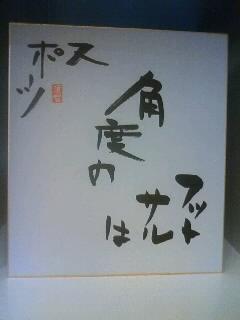 フット
サルは
角度の
スポーツ